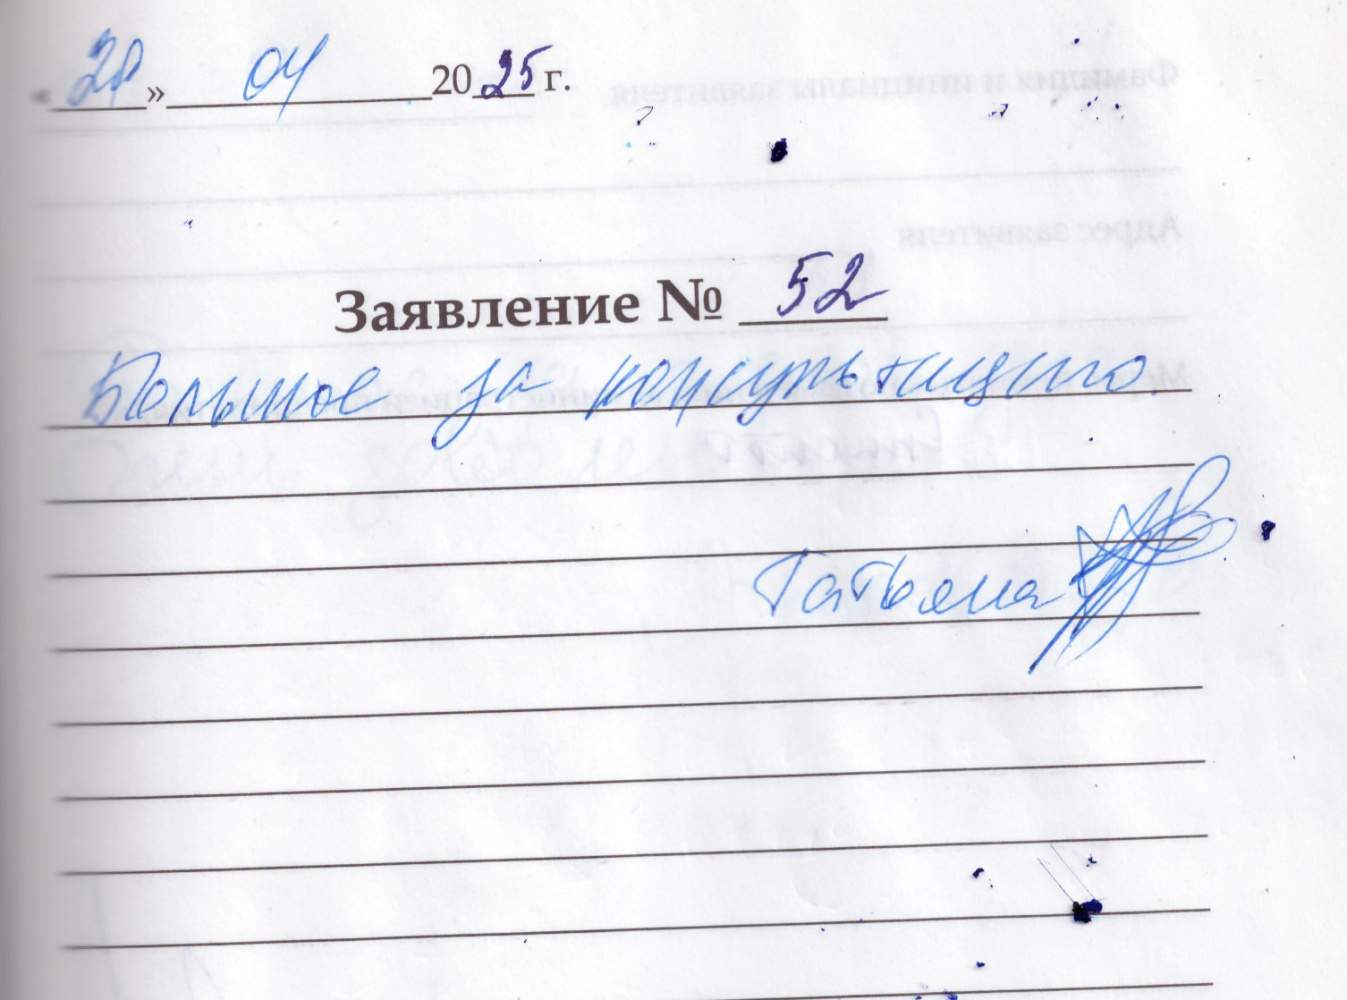 « 28 » 04 2025 г.
Заявление № 52
Большое за консультацию
Татьяна